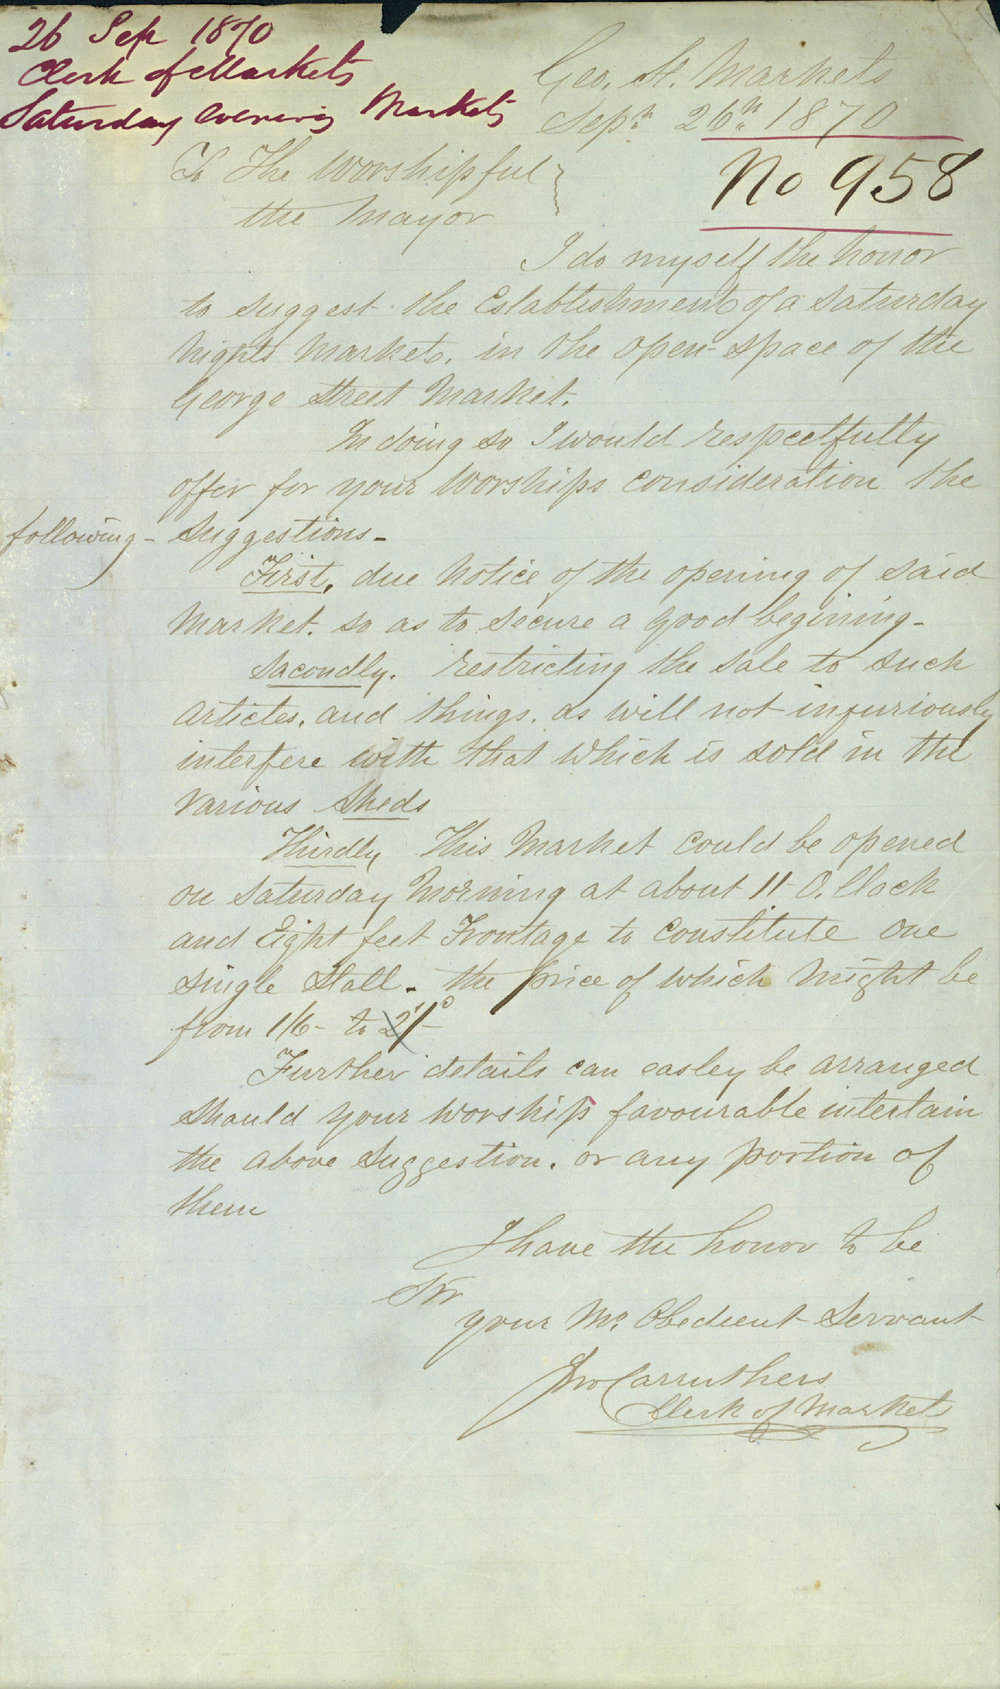 26 Sep 1870
Clerk of Markets
Saturday evening Markets
Geo. St. Markets
Sepr. 26th 1870
No 958
To The Worshipful
the Mayor
I do myself the honor
to suggest the Establishment of a Saturday
nights Market, in the open space of the
George Street Market.
In doing so I would respectfully
offer for your Worships consideration the
following - suggestions -
First, due notice of the opening of said
Market. so as to secure a good begining -
Sacondly. restricting the sale to such
articles, and things. as will not injuriously
interfere with that which is sold in the
various Sheds
Thirdly This Market could be opened
on Saturday Morning at about 11 O.Clock
and Eight feet Frontage to constitute one
single Stall - the price of which might be
from 1/6 - to 2/-
Further details can easley be arranged
should your worship favourable intertain
the above suggestion. or any portion of
them
I have the honor to be
Sir
your Mo. Obedient Servant
Jno Carruthers
Clerk of Markets